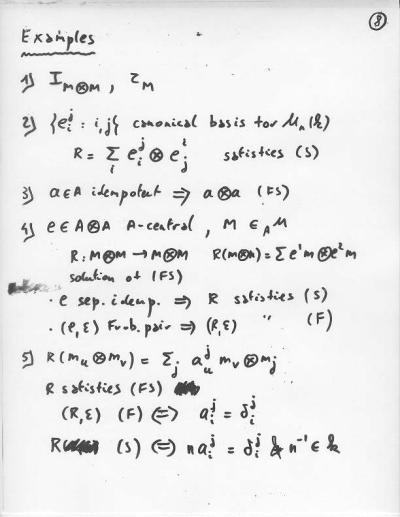 8
Examples
1) I_{M⊗M}, τ_M
2) {e_i^j : i,j} canonical basis for M_n(k)
R = Σ_i e_i^j ⊗ e_j^i satisfies (S)
3) a∈A idempotent ⟹ a⊗a (FS)
4) e∈A⊗A A-central, M ∈ _A M
R: M⊗M → M⊗M R(m⊗n) = Σ e^1 m ⊗ e^2 m
solution of (FS)
· e sep. idemp. ⟹ R satisfies (S)
· (e, ε) Frob. pair ⟹ (R, ε) " (F)
5) R(m_u ⊗ m_v) = Σ_j a_u^j m_v ⊗ m_j
R satisfies (FS)
(R, ε) (F) ⟺ a_i^j = δ_i^j
R (S) ⟺ n a_i^j = δ_i^j & n^{-1} ∈ k